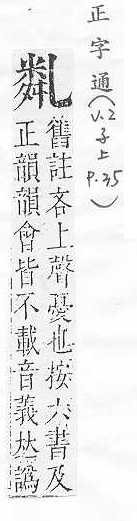 正字通(V.2子上P.35)
舊註吝上聲憂也按六書及
正韻韻會皆不載音義𠀤譌